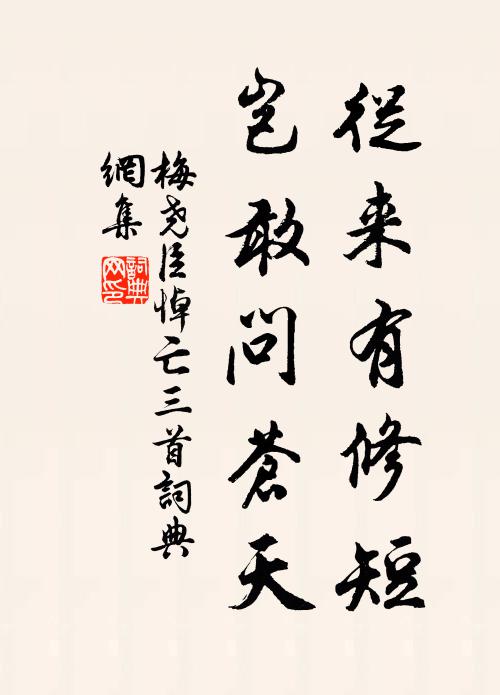 從来有修短
豈敢問蒼天
梅尧臣悼亡三首詞典
網集
詞典
网印